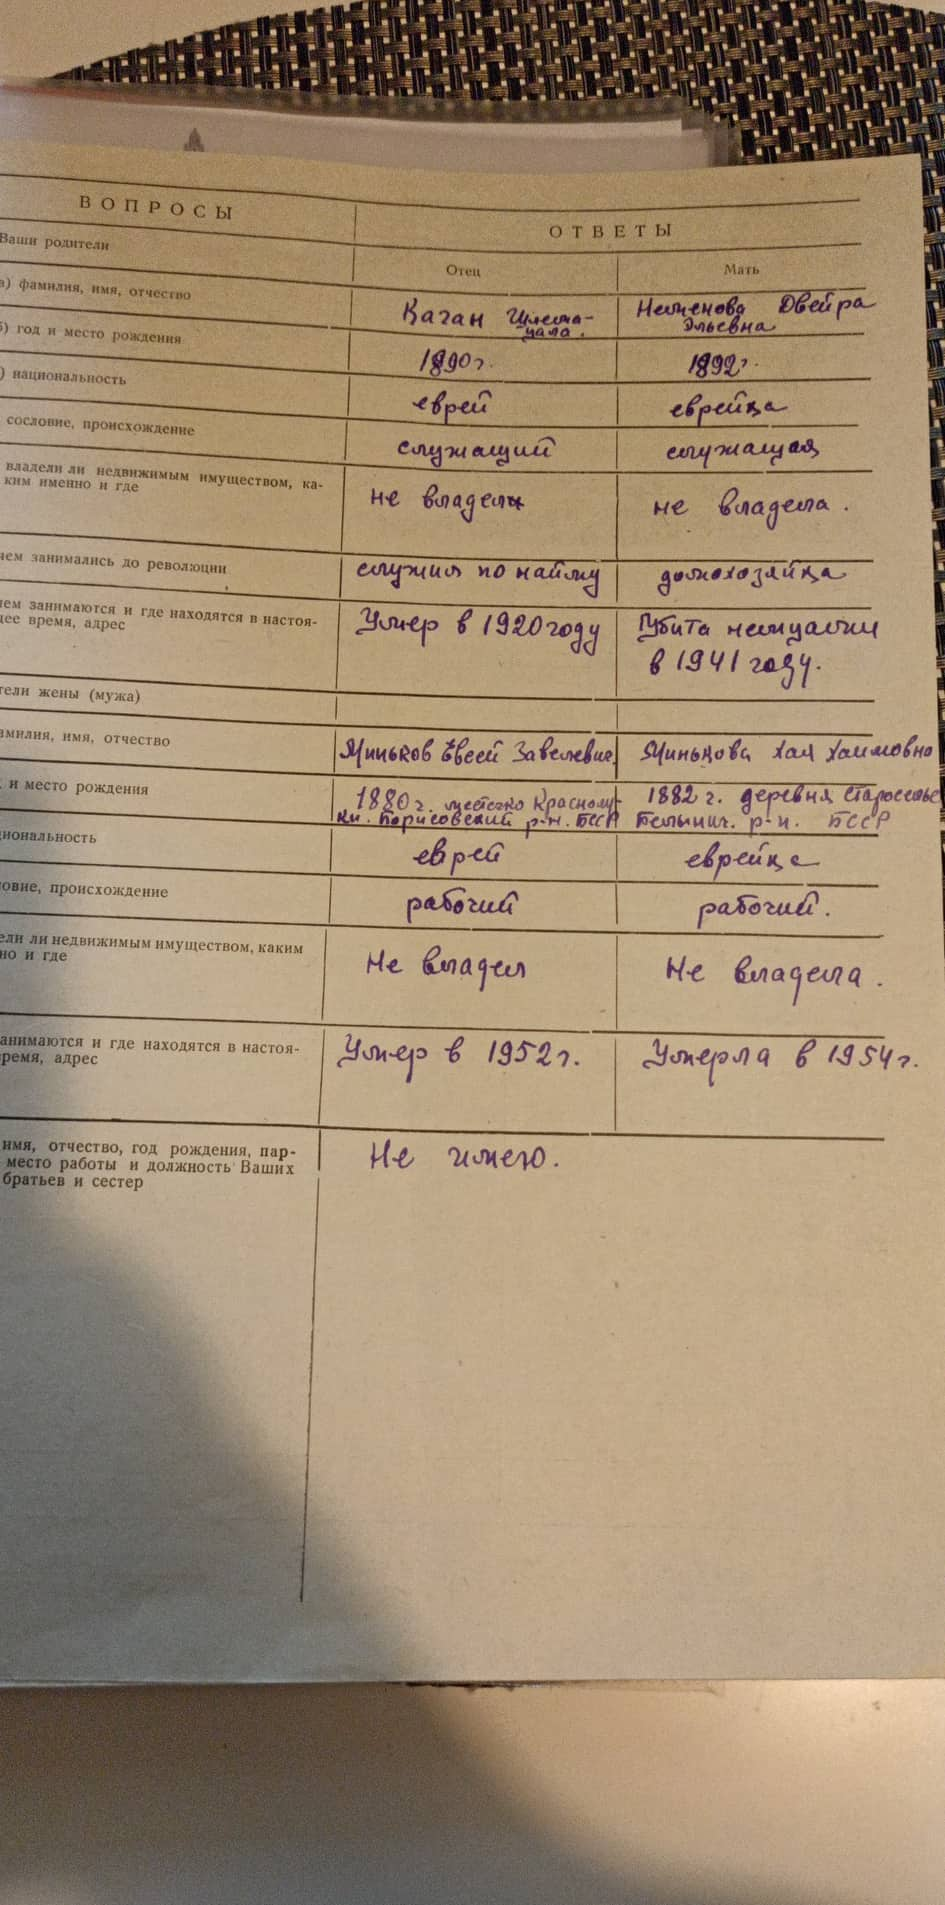 ВОПРОСЫ
ОТВЕТЫ
Ваши родители
Отец
Мать
а) фамилия, имя, отчество
Каган
Двейра
Эльевна
б) год и место рождения
1890г.
1892г.
) национальность
еврей
еврейка
сословие, происхождение
служащий
служащая
владели ли недвижимым имуществом, ка-
ким именно и где
не владел
не владела.
чем занимались до революции
служил по найму
домохозяйка
чем занимаются и где находятся в настоя-
щее время, адрес
Умер в 1920 году
Убита немцами
в 1941 году.
тели жены (мужа)
амилия, имя, отчество
Миньков Евсей
Минькова Хая Хаимовно
и место рождения
1880 г. местечко Краснолу-
ки. Борисовский р-н. БССР
1882 г. деревня Староселье
Белынич. р-н. БССР
циональность
еврей
еврейка
ловие, происхождение
рабочий
рабочий.
ели ли недвижимым имуществом, каким
но и где
Не владел
Не владела.
анимаются и где находятся в настоя-
ремя, адрес
Умер в 1952 г.
Умерла в 1954 г.
имя, отчество, год рождения, пар-
место работы и должность Ваших
братьев и сестер
Не имею.